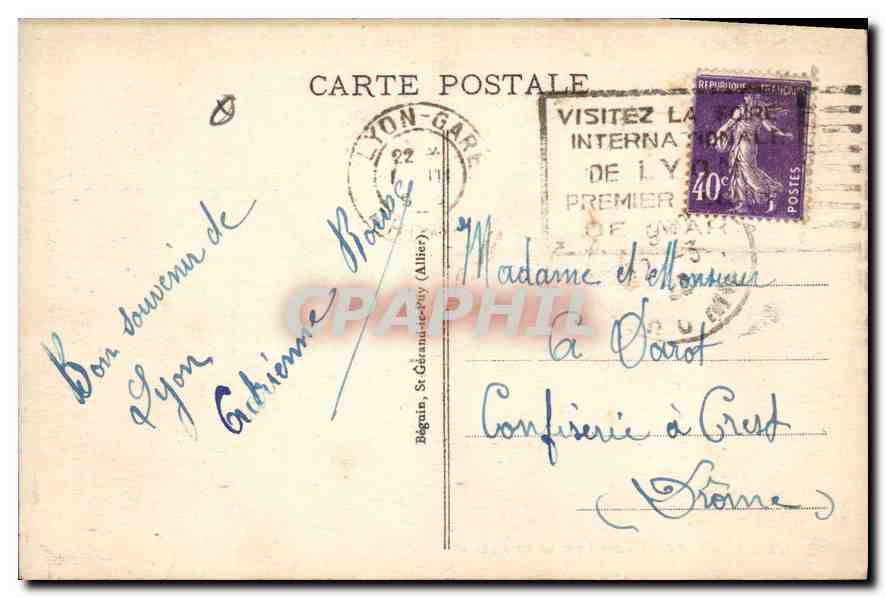 CARTE POSTALE
LYON-GARE
22
VISITEZ LA FOIRE
INTERNATIONALE
DE LYON
PREMIER
DE MARS
REPUBLIQUE FRANÇAISE
40c
POSTES
Bon souvenir de
Lyon
Adrienne
Béguin, St-Gérand-le-Puy (Allier)
CPAPHIL
Madame et Monsieur
A Darot
Confiserie à Crest
(Drôme)